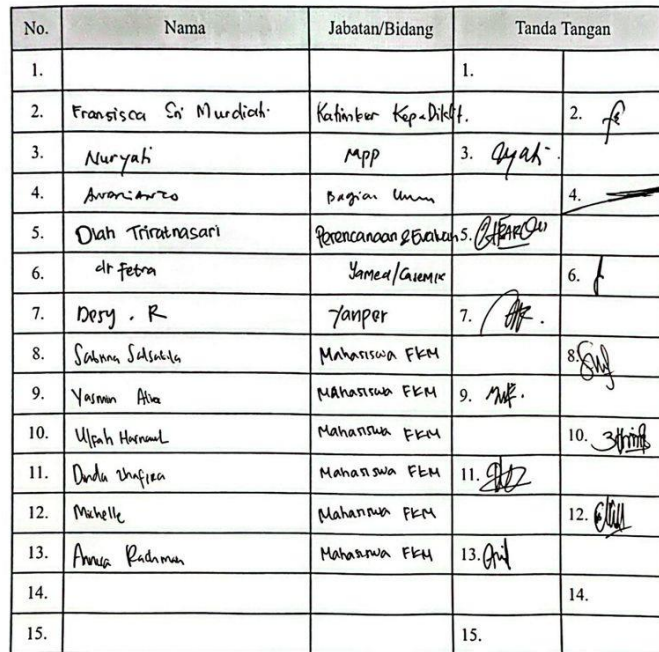 No. Nama Jabatan/Bidang Tanda Tangan
1. 1.
2. Fransisca Sri Murdiati Katimker Kep-Diklit. 2.
3. Nuryati MPP 3. Nyati.
4. Bagian Umum 4.
5. Diah Triratnasari Perencanaan & Evaluasi 5.
6. dr Fetra Yamed/Casemix 6.
7. Desy . R Yanper 7.
8. Sabrina Salsabila Mahasiswa FKM 8.
9. Yasmin Alia Mahasiswa FKM 9.
10. Ulfah Mahasiswa FKM 10.
11. Dinda Mahasiswa FKM 11.
12. Michelle Mahasiswa FKM 12.
13. Annisa Mahasiswa FKM 13.
14. 14.
15. 15.